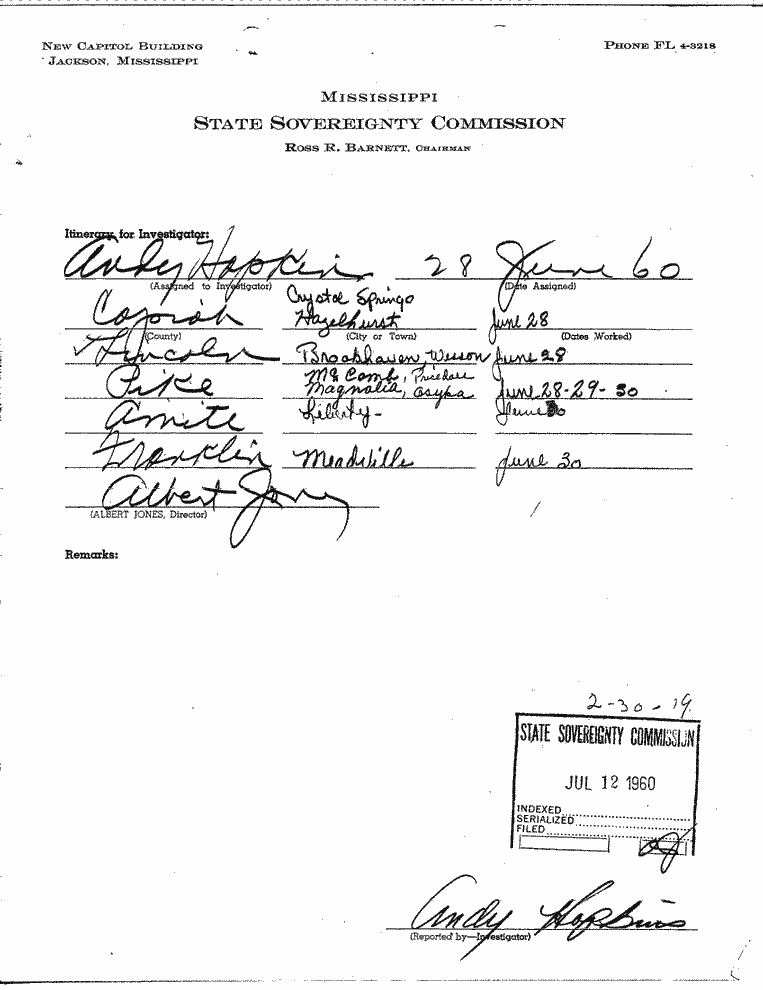 NEW CAPITOL BUILDING
JACKSON, MISSISSIPPI
PHONE FL 4-3218
MISSISSIPPI
STATE SOVEREIGNTY COMMISSION
ROSS R. BARNETT, CHAIRMAN
Itinerary for Investigator:
Andy Hopkins 28 June 60
(Assigned to Investigator) (Date Assigned)
Crystal Springs
Copiah Hazelhurst June 28
(County) (City or Town) (Dates Worked)
Lincoln Brookhaven, Wesson June 28
Mc Comb, Pricedale
Pike Magnolia, Osyka June 28-29-30
Amite Liberty- June 30
Franklin Meadville June 30
Albert Jones
(ALBERT JONES, Director)
Remarks:
2-30-19
STATE SOVEREIGNTY COMMISSION
JUL 12 1960
INDEXED
SERIALIZED
FILED
Andy Hopkins
(Reported by—Investigator)